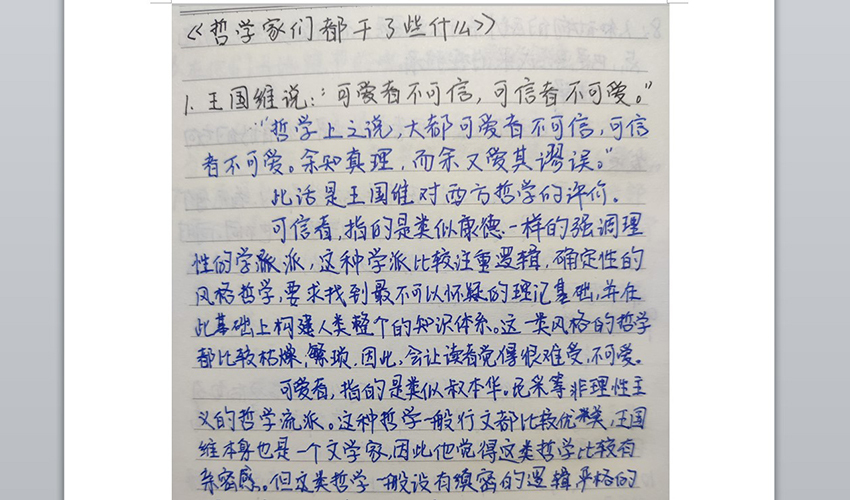 《哲学家们都干了些什么》
1. 王国维说："可爱者不可信，可信者不可爱。"
"哲学上之说，大都可爱者不可信，可信
者不可爱。余知真理，而余又爱其谬误。"
此话是王国维对西方哲学的评价。
可信者，指的是类似康德一样的强调理
性的学派，这种学派比较注重逻辑，确定性的
风格哲学，要求找到最不可以怀疑的理论基础，并在
此基础上构建人类整个的知识体系。这一类风格的哲学
都比较枯燥，繁琐，因此，会让读者觉得很难受，不可爱。
可爱者，指的是类似叔本华。尼采等非理性主
义的哲学流派。这种哲学一般行文都比较优美，王国
维本身也是一个文学家，因此他觉得这类哲学比较有
亲密感。但这类哲学一般没有缜密的逻辑，严格的